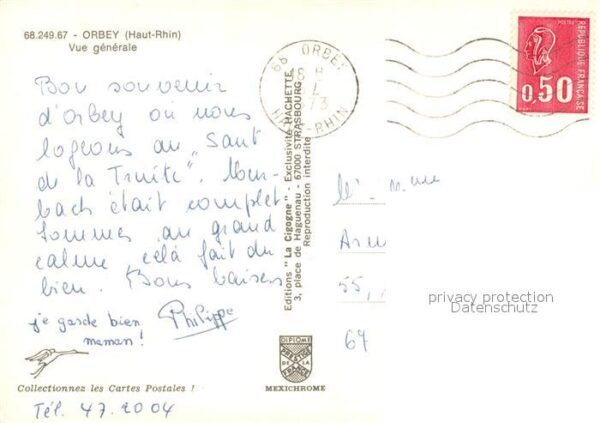 68.249.67 - ORBEY (Haut-Rhin)
Vue générale
Bon souvenir
d'Orbey où nous
logeons au "Saut
de la Truite".
bach était complet
sommes au grand
calme, celà fait du
bien. Bons baisers
Philippe
je garde bien
maman !
Collectionnez les Cartes Postales !
Tél. 47.20 04
68 ORBEY
73
HT-RHIN
Editions "La Cigogne" - Exclusivité HACHETTE
3, place de Haguenau - 67000 STRASBOURG
Reproduction interdite
DIPLOME
PRESTIGE
DE LA
FRANCE
MEXICHROME
POSTES
REPUBLIQUE FRANÇAISE
0,50
M. Mme
55,
67
privacy protection
Datenschutz